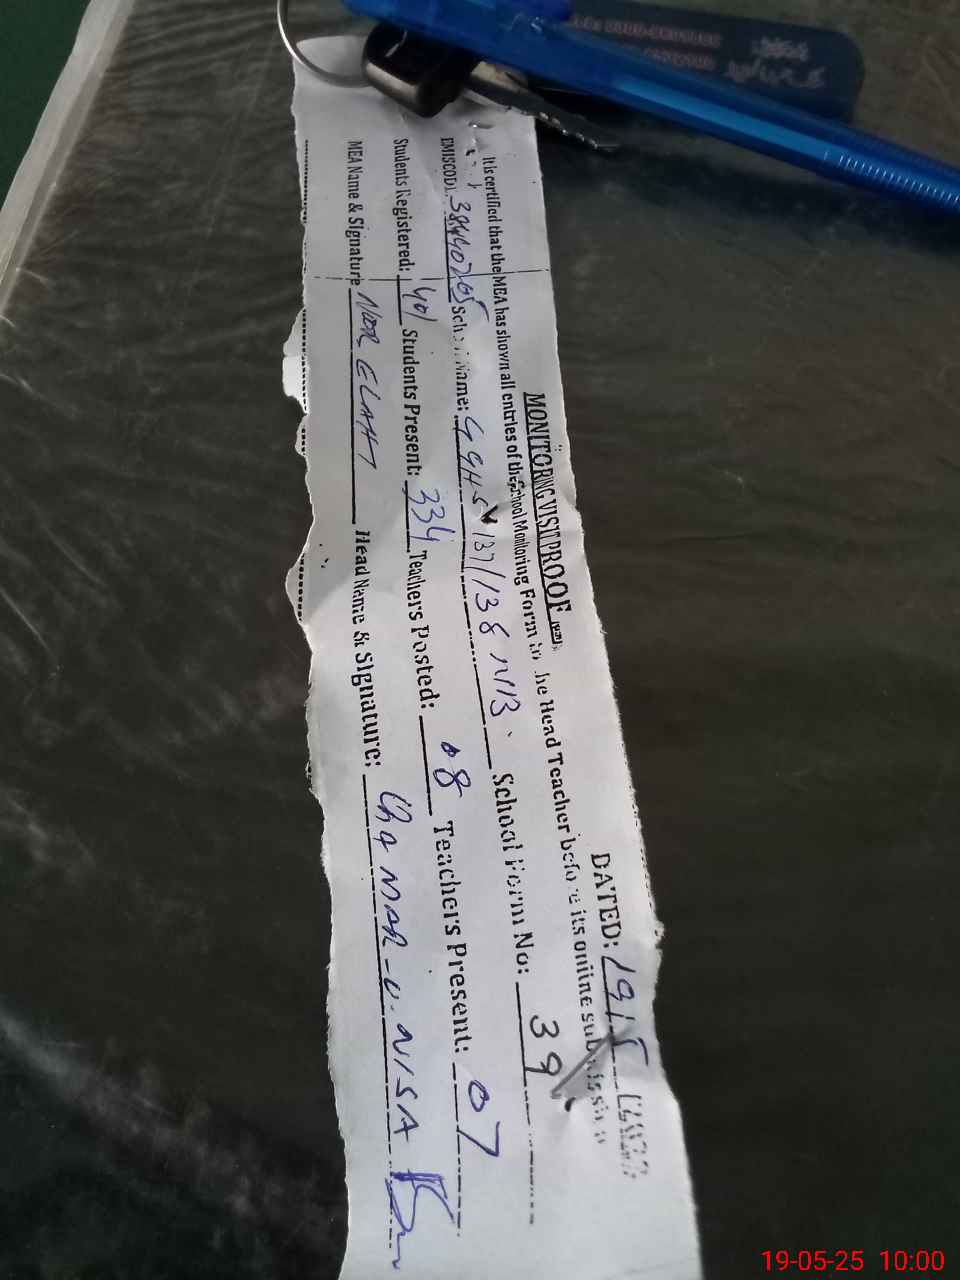 MONITORING VISIT PROOF
DATED: 19/5
It is certified that the MEA has shown all entries of the School Monitoring Form to the Head Teacher before its online submission
EMISCODE: 38440705 School Name: GGHS 137/138 N/B School Form No: 39
Students Registered: 401 Students Present: 334 Teachers Posted: 08 Teachers Present: 07
MEA Name & Signature NOOR ELAHI Head Name & Signature: QAMAR-U-NISA
19-05-25 10:00